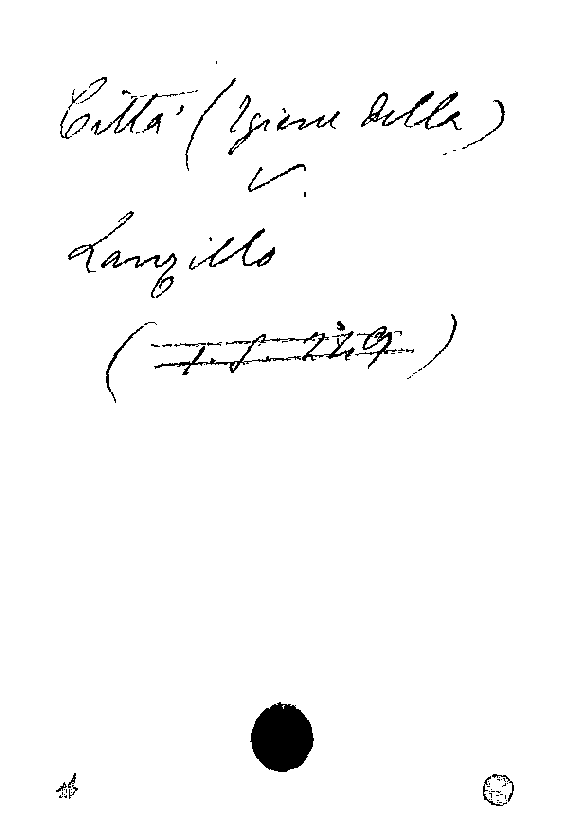 Città (Igiene della)
V.
Lanzillo